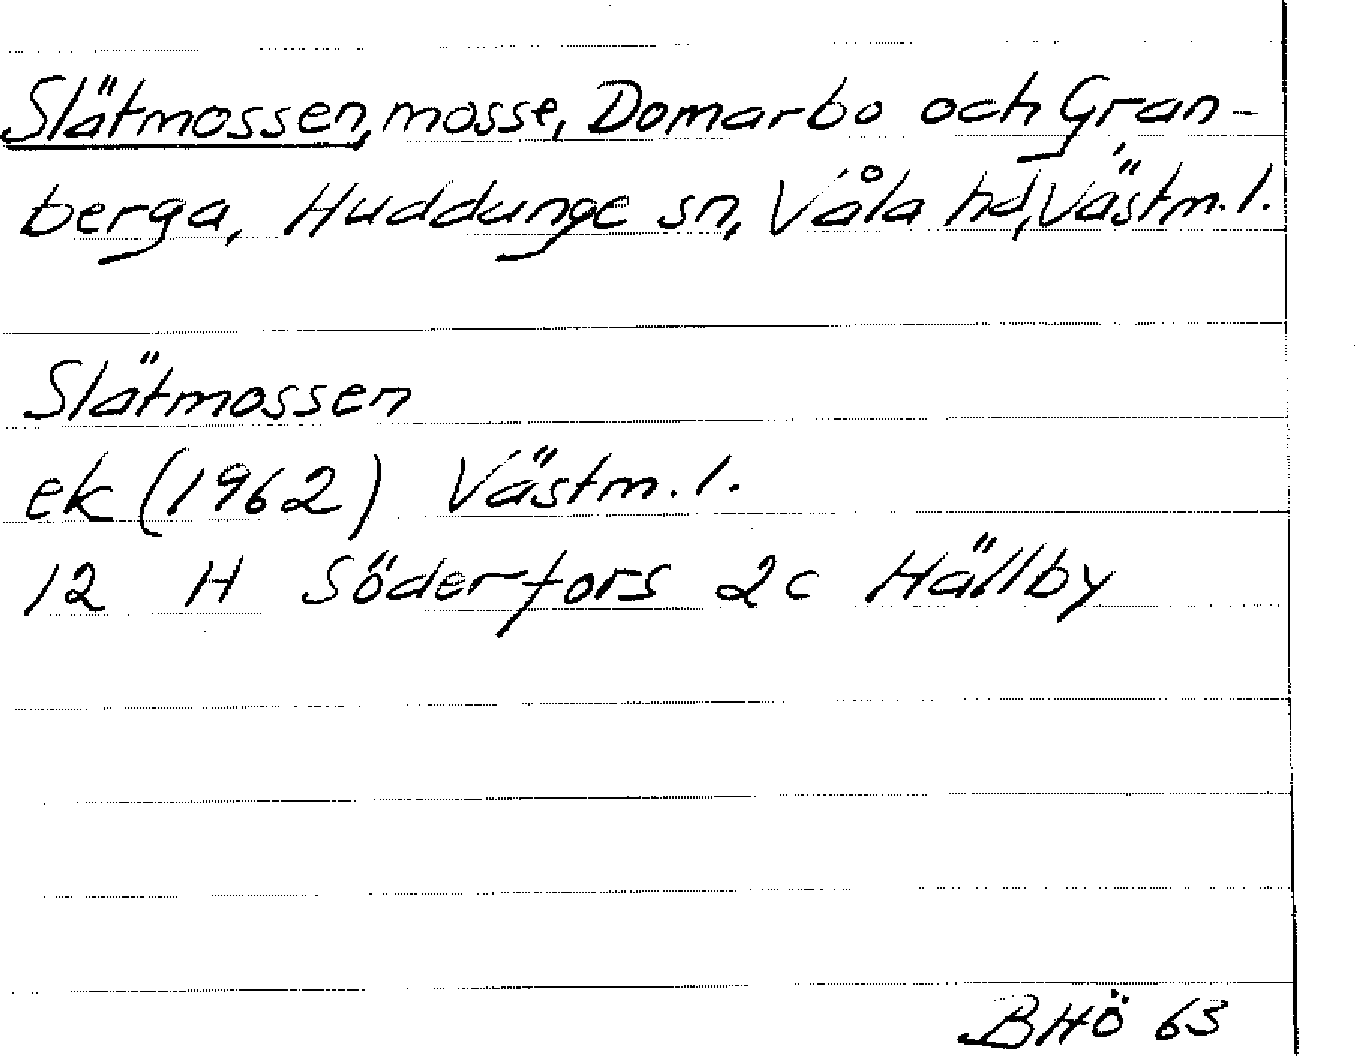 Slätmossen, mosse, Domarbo och Gran-
berga, Huddunge sn, Våla hd, Västm. l.
Slätmossen
ek (1962) Västm. l.
12 H Söderfors 2c Hällby
BHÖ 63